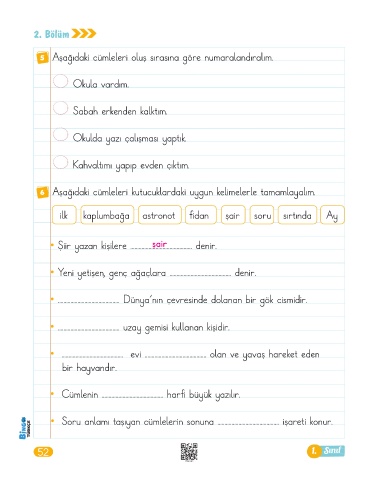 2. Bölüm
5 Aşağıdaki cümleleri oluş sırasına göre numaralandıralım.
Okula vardım.
Sabah erkenden kalktım.
Okulda yazı çalışması yaptık.
Kahvaltımı yapıp evden çıktım.
6 Aşağıdaki cümleleri kutucuklardaki uygun kelimelerle tamamlayalım.
ilk kaplumbağa astronot fidan şair soru sırtında Ay
• Şiir yazan kişilere şair denir.
• Yeni yetişen, genç ağaçlara ........................ denir.
• ........................ Dünya'nın çevresinde dolanan bir gök cismidir.
• ........................ uzay gemisi kullanan kişidir.
• ........................ evi ........................ olan ve yavaş hareket eden
bir hayvandır.
• Cümlenin ........................ harfi büyük yazılır.
• Soru anlamı taşıyan cümlelerin sonuna ........................ işareti konur.
BİNGO
52
1. Sınıf